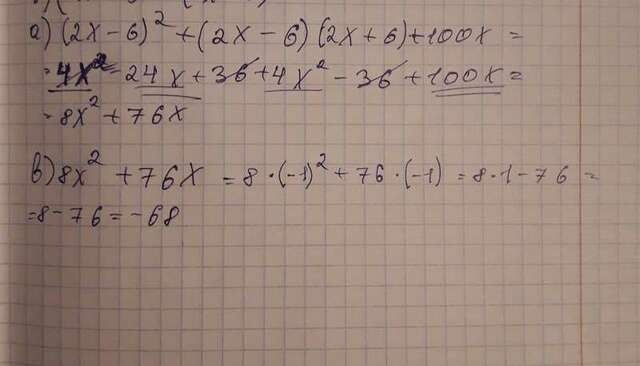 а) (2x-6)² + (2x-6)(2x+6) + 100x =
= 4x² - 24x + 36 + 4x² - 36 + 100x =
= 8x² + 76x
в) 8x² + 76x = 8 · (-1)² + 76 · (-1) = 8 · 1 - 76 =
= 8 - 76 = -68